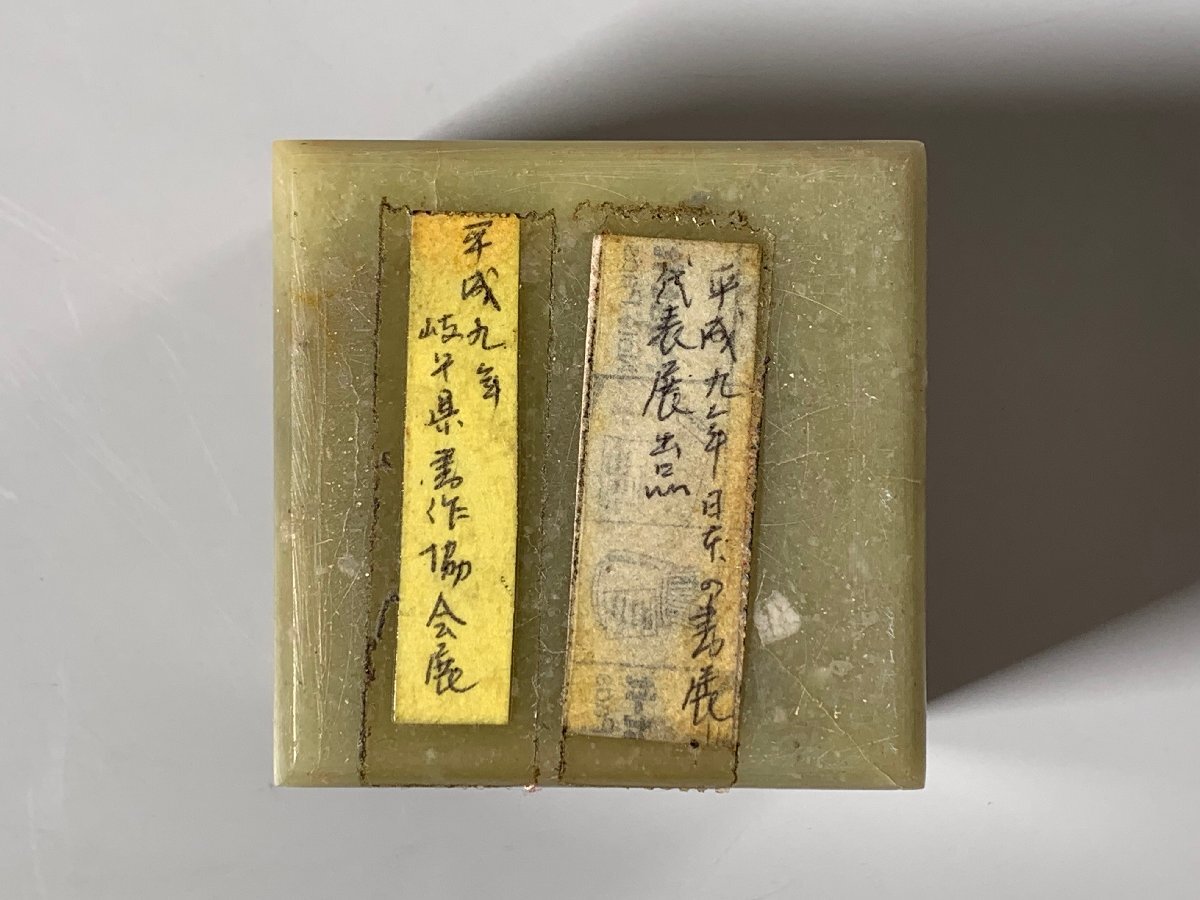 平成九年日本の書展
代表展出品
平成九年
岐阜県書作協会展